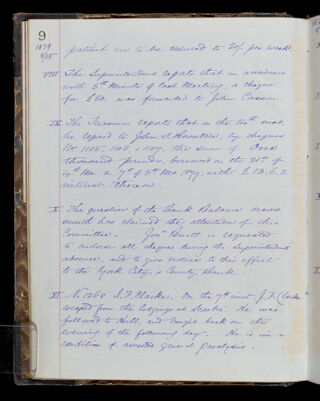 9
1879
8/15
patient are to be reduced to 20/- per week.
VIII The Superintendent reports that in accordance
with 5th Minute of last Meeting, a cheque
for £50. was forwarded to John Casson.
IX The Treasurer reports that on the 14th inst,
he repaid to John S. Rowntree, by cheques
No 1105, 1106, & 1107, the sum of One
thousand pounds, borrowed on the 21st of
4th Mo. & 7th of 5th Mo. 1879, with £13.6.2
interest thereon.
X The question of the Bank Balance
month has claimed the attention of this
Committee. Jonn Burtt is requested
to endorse all cheques during the Superintendents
absence, and to give notice to this effect
to the York City & County Bank.
XI No 1268 J. F. Clarke. On the 7th inst J. F. Clarke
escaped from the lodgings at Scarbro'. He was
followed to Hull, and brought back on the
evening of the following day. He is in a
condition of general paralysis.